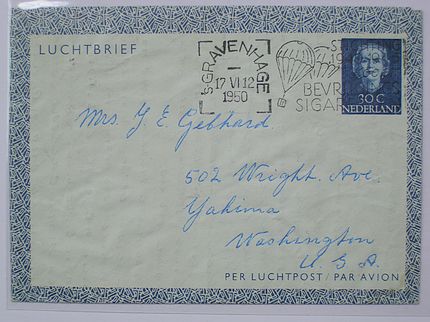 LUCHTBRIEF
'S-GRAVENHAGE
17 VI 12
1950
BEVR
SIGAR
30 C
NEDERLAND
Mrs J. E. Gebhard.
502 Wright. Ave.
Yakima
Washington
U S A
PER LUCHTPOST/PAR AVION